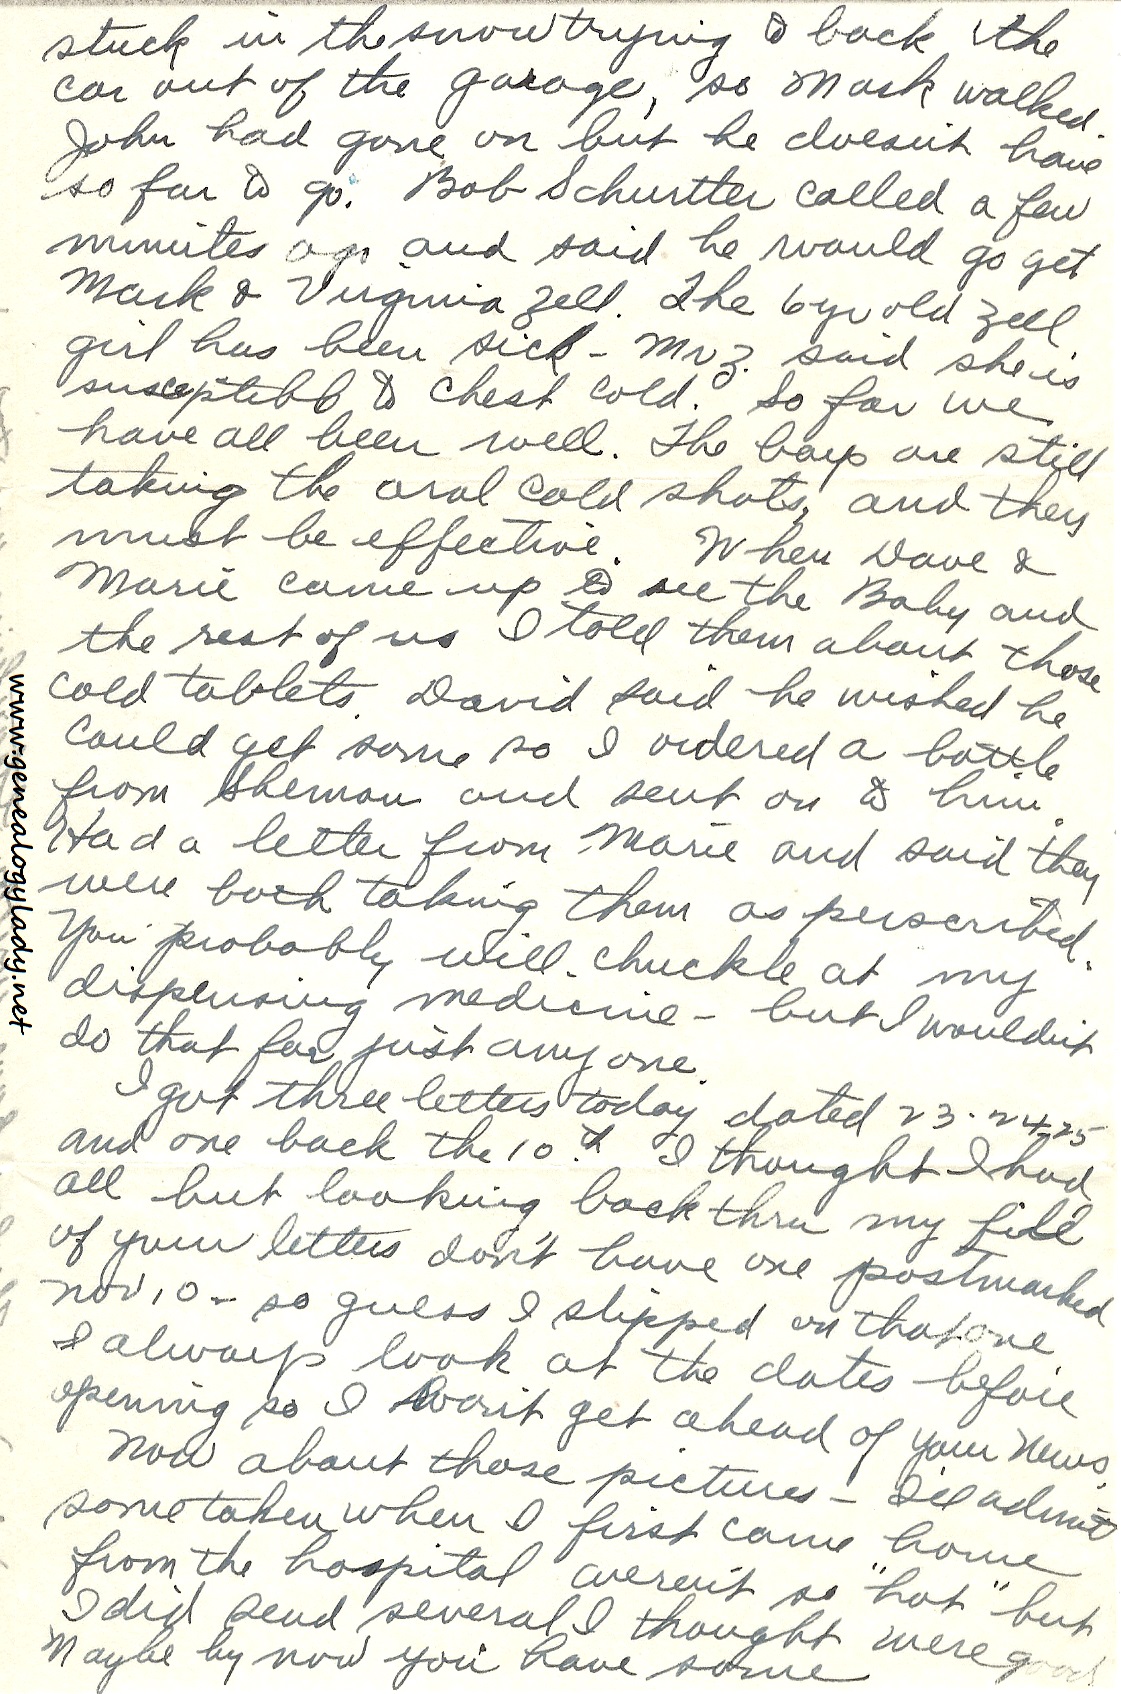 stuck in the snow trying to back the
car out of the garage, so Mark walked.
John had gone on but he doesn't have
so far to go. Bob Schurtter called a few
minutes ago and said he would go get
Mark & Virginia Zell. The 6 yr old Zell
girl has been sick - Mr Z. said she is
susceptible to chest cold. So far we
have all been well. The boys are still
taking the oral cold shots, and they
must be effective. When Dave &
Marie came up to see the Baby and
the rest of us I told them about those
cold tablets. David said he wished he
could get some so I ordered a bottle
from Sherman and sent on to him.
Had a letter from Marie and said they
were both taking them as perscribed.
You probably will chuckle at my
dispensing medicine - but I wouldn't
do that for just any one.
I got three letters today dated 23-24-25
and one back the 10th. I thought I had
all but looking back thru my file
of your letters don't have one postmarked
Nov 10 - so guess I slipped on that one
I always look at the dates before
opening so I won't get ahead of your news.
Now about those pictures - I'll admit
some taken when I first came home
from the hospital weren't so "hot" but
I did send several I thought were good
Maybe by now you have some
www.genealogylady.net